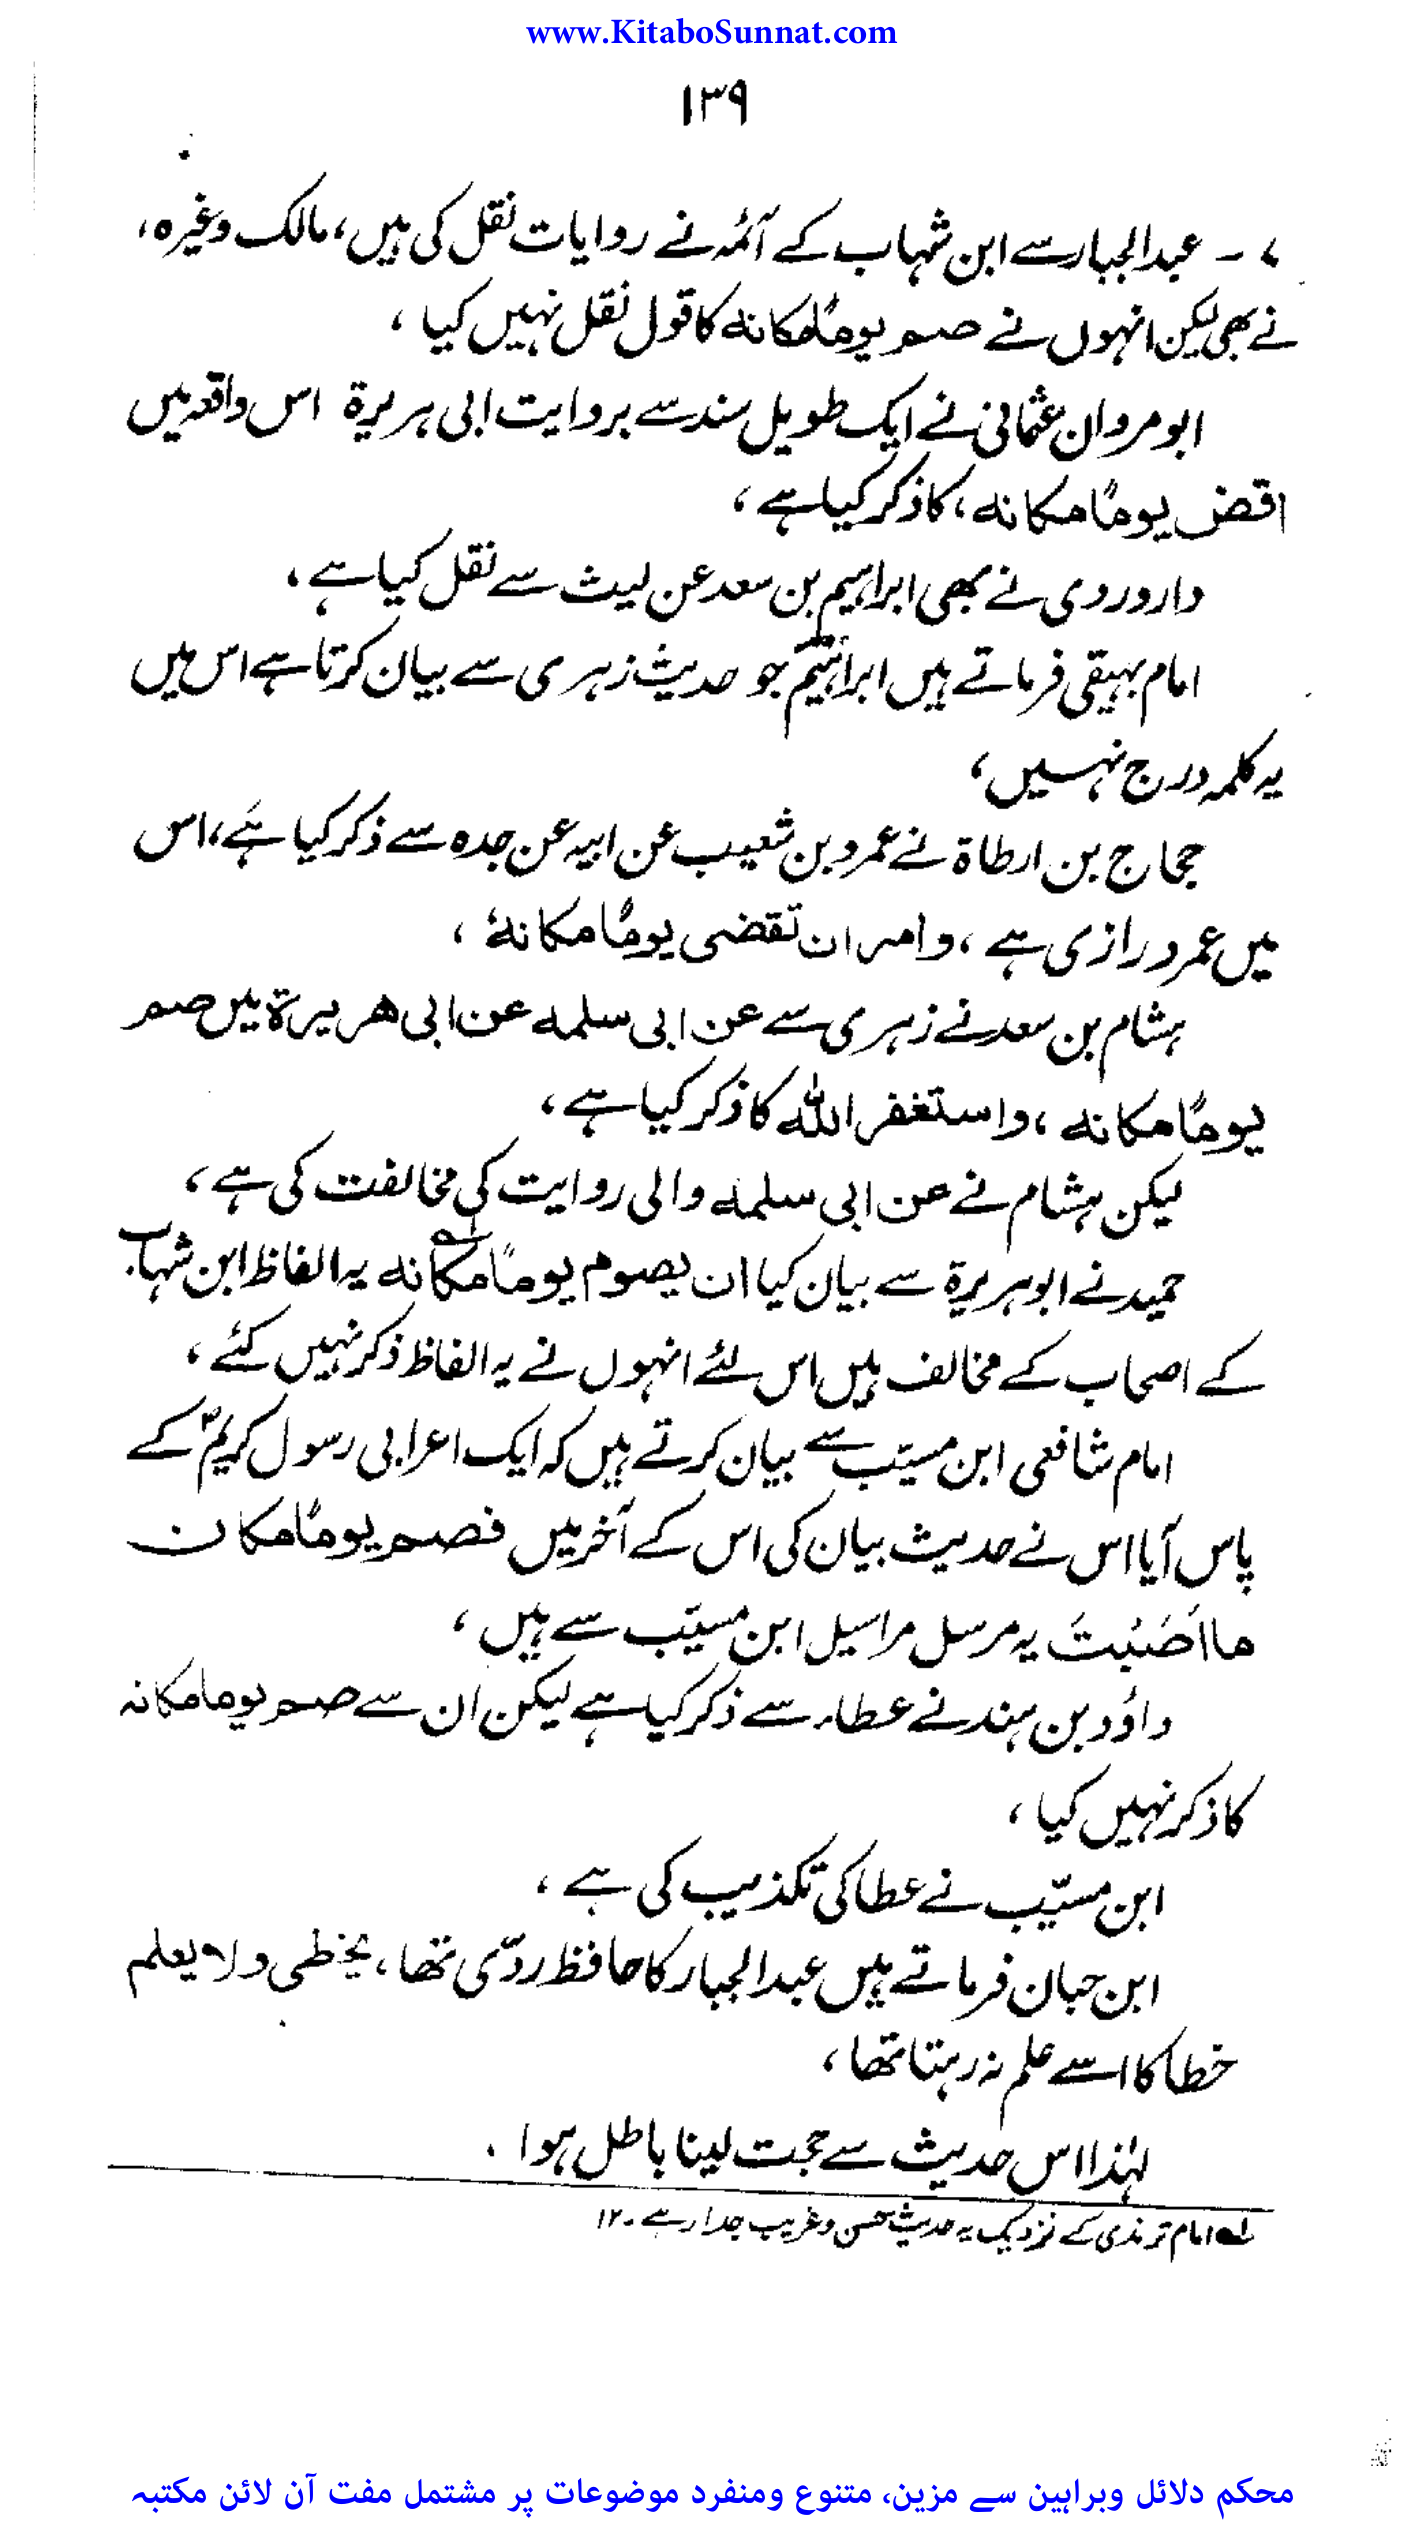 www.KitaboSunnat.com
۱۳۹
۷ - عبدالجبار سے ابن شہاب کے آئمہ نے روایات نقل کی ہیں، مالک وغیرہ،
نے بھی لیکن انہوں نے صم یوماً مکانہ کا قول نقل نہیں کیا ،
ابو مروان عثمانی نے ایک طویل سند سے بروایت ابی ہریرۃ اس واقعہ میں
اقض یوماً مکانہ، کا ذکر کیا ہے ،
داروردی نے بھی ابراہیم بن سعد عن لیث سے نقل کیا ہے ،
امام بہیقی فرماتے ہیں ابراہیم جو حدیث زہری سے بیان کرتا ہے اس میں
یہ کلمہ درج نہیں ،
حجاج بن ارطاۃ نے عمرو بن شعیب عن ابیہ عن جدہ سے ذکر کیا ہے، اس
میں عمرو رازی ہے ، وامر ان تقضی یوماً مکانہٗ ،
ہشام بن سعد نے زہری سے عن ابی سلمہ عن ابی ھریرۃ میں صم
یوماً مکانہ ، واستغفر اللہ کا ذکر کیا ہے ،
لیکن ہشام نے عن ابی سلمہ والی روایت کی مخالفت کی ہے ،
حمید نے ابوہریرۃ سے بیان کیا ان یصوم یوماً مکانہ لہ یہ الفاظ ابن شہاب
کے اصحاب کے مخالف ہیں اس لئے انہوں نے یہ الفاظ ذکر نہیں کئے ،
امام شافعی ابن مسیّب سے بیان کرتے ہیں کہ ایک اعرابی رسول کریمؐ کے
پاس آیا اس نے حدیث بیان کی اس کے آخر میں فصم یوماً مکان
ما اَصَبْتَ یہ مرسل مراسیل ابن مسیّب سے ہیں ،
داؤد بن ہند نے عطاء سے ذکر کیا ہے لیکن ان سے صم یوما مکانہ
کا ذکر نہیں کیا ،
ابن مسیّب نے عطا کی تکذیب کی ہے ،
ابن حبان فرماتے ہیں عبدالجبار کا حافظ ردّی تھا ، یخطی ولا یعلم
خطا کا اسے علم نہ رہتا تھا ،
لہٰذا اس حدیث سے حجت لینا باطل ہوا .
لہ امام ترمذی کے نزدیک یہ حدیث حسن وغریب جدا رہے ۔ ۱۲
محکم دلائل وبراہین سے مزین، متنوع ومنفرد موضوعات پر مشتمل مفت آن لائن مکتبہ